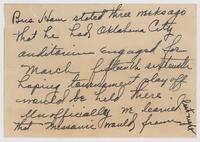 Bus Ham stated three weeks ago
that he had Oklahoma City
auditorium engaged for
March fifteenth sixteenth
hoping tournament play off
would be held there
Unofficially we learned
that Missouri would favor
last night